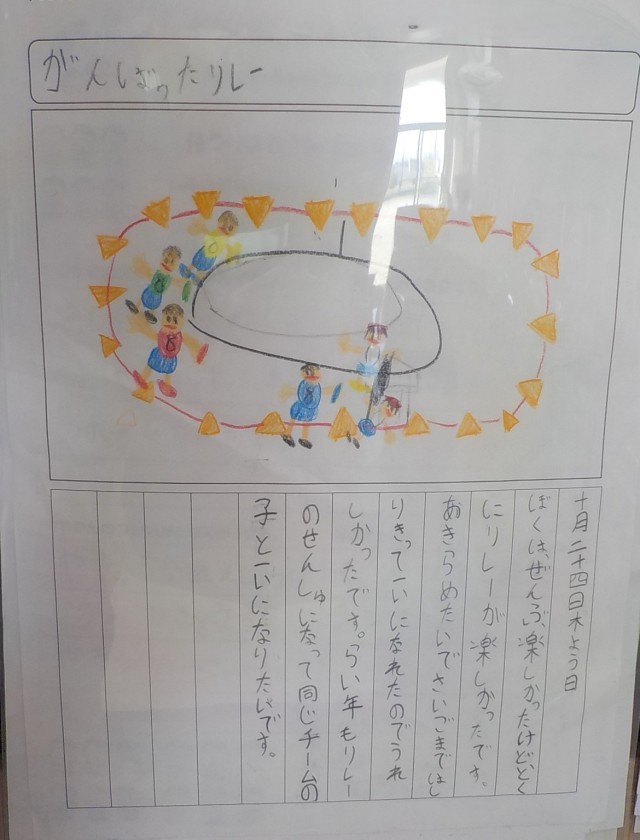 がんばったリレー
十月二十四日木よう日
ぼくは、ぜんぶ、楽しかったけど、とく
にリレーが楽しかったです。
あきらめたいでさいごまではし
りきって一いになれたのでうれ
しかったです。らい年もリレー
のせんしゅになって同じチームの
子と一いになりたいです。